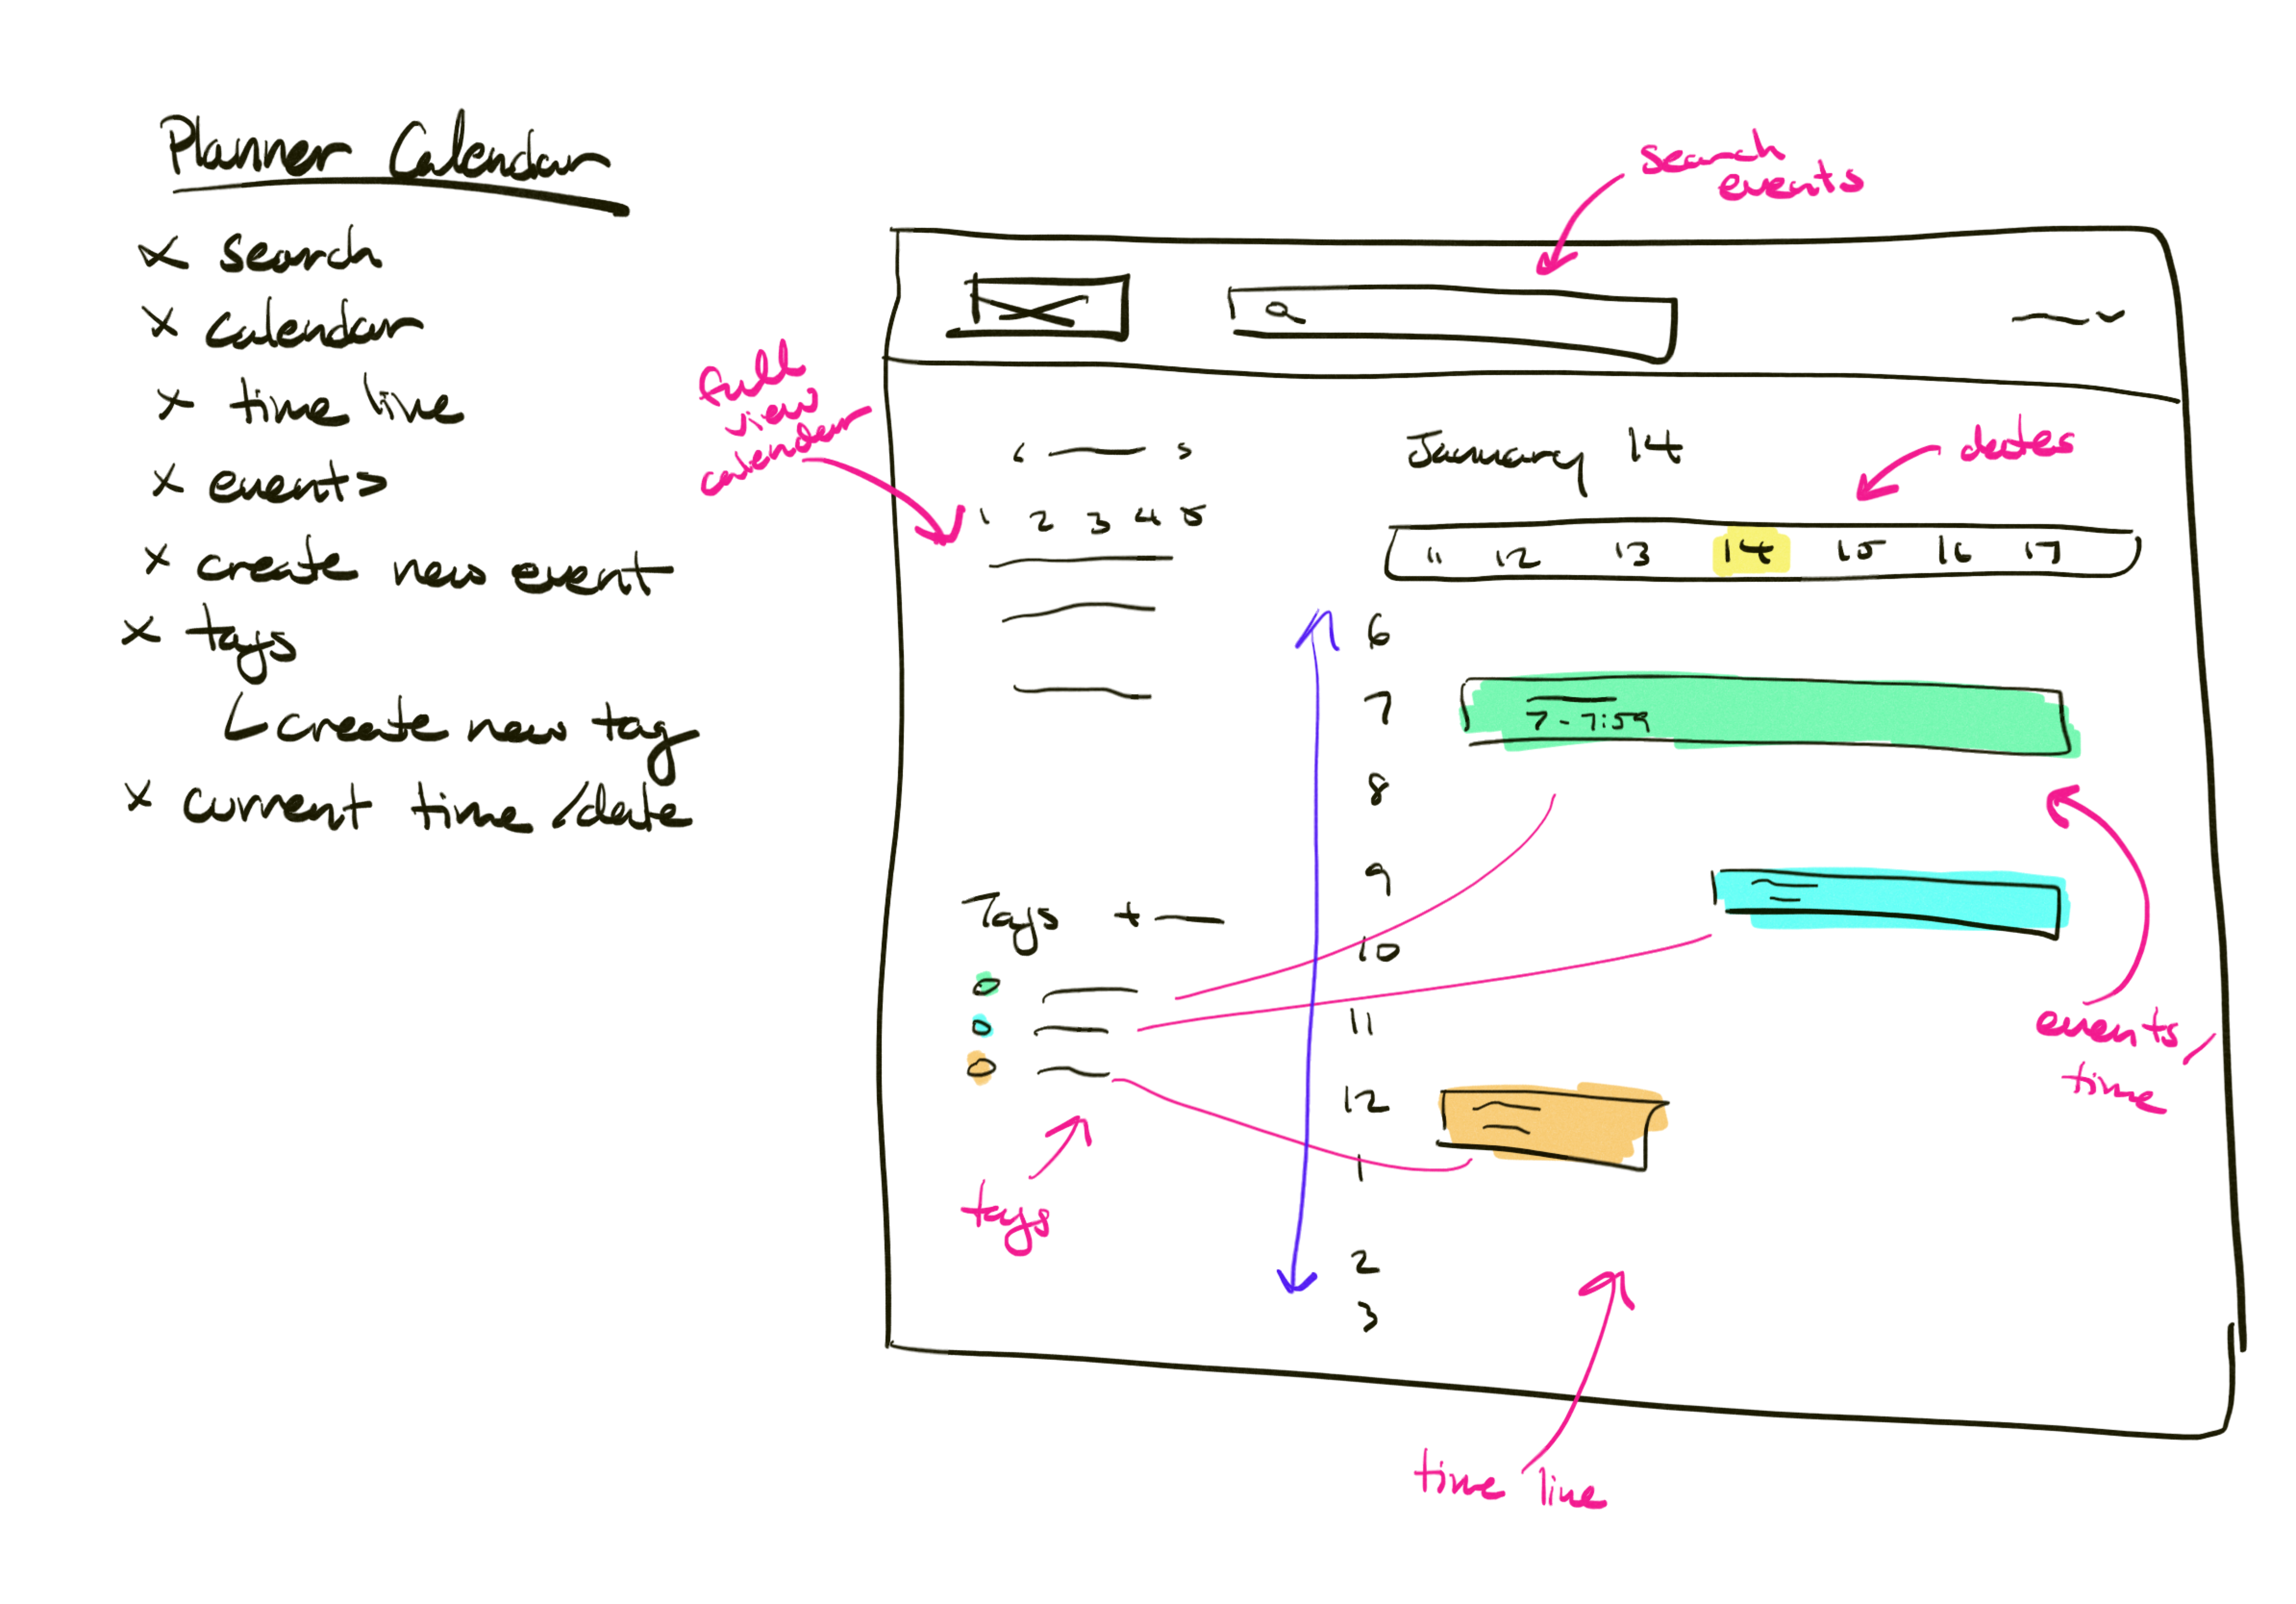 Planner Calendar
x search
x calendar
x time line
x events
x create new event
x tags
create new tag
x current time/date
search
events
full
view
calendar
< >
1 2 3 4 5
January 14
dates
11 12 13 14 15 16 17
6
7
7 - 7:59
8
9
10
11
12
1
2
3
Tags +
tags
events/
time
time line